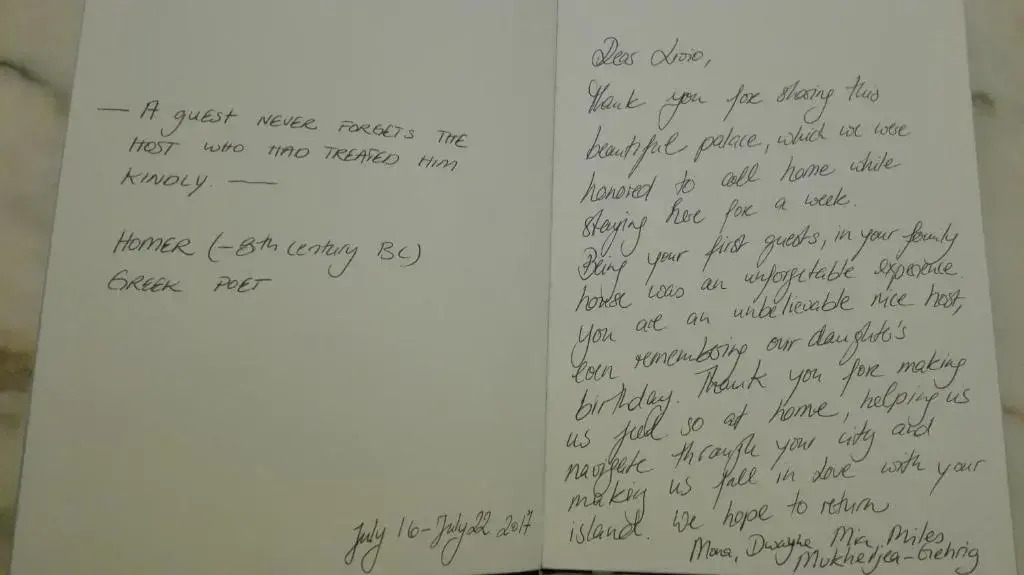 — A GUEST NEVER FORGETS THE
HOST WHO HAD TREATED HIM
KINDLY. —
HOMER (-8th century BC)
GREEK POET
July 16-July 22 2017
Dear Livio,
Thank you for sharing this
beautiful palace, which we were
honored to call home while
staying here for a week.
Being your first guests, in your family
house was an unforgetable experience.
You are an unbelievable nice host,
even remembering our daughter's
birthday. Thank you for making
us feel so at home, helping us
navigate through your city and
making us fall in love with your
island. We hope to return
Mona, Dwayne, Mia, Miles
Mukherjea-Gehrig